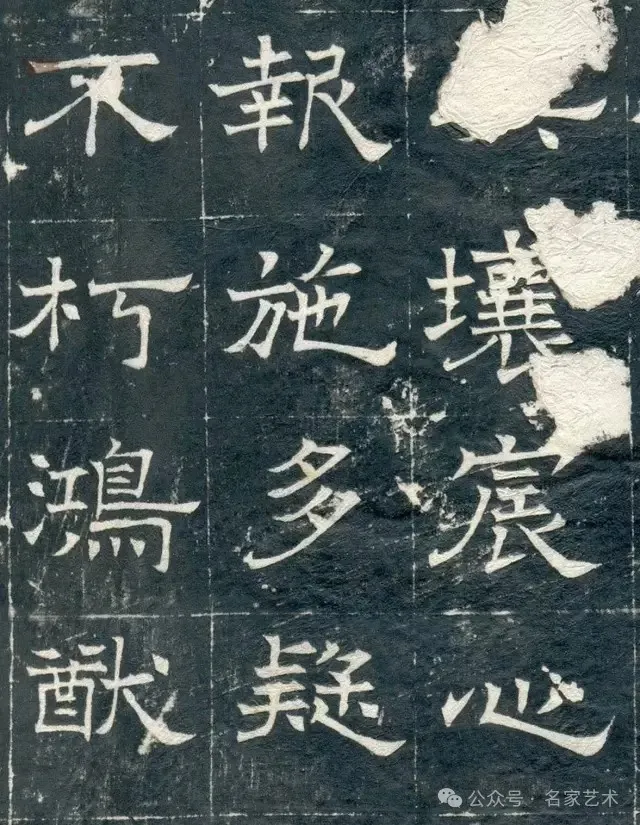 壤宸心
報施多疑
不朽鴻猷
公众号·名家艺术